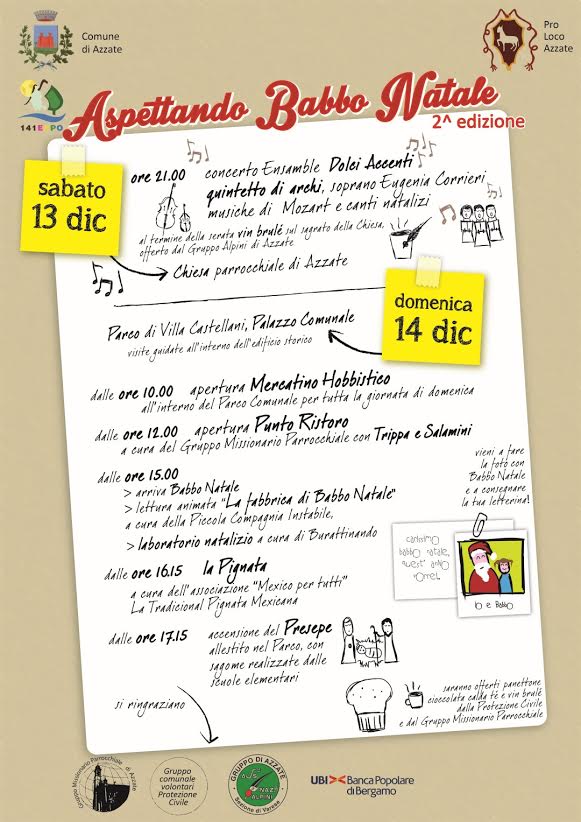 Comune
di Azzate
Pro
Loco
Azzate
141EXPO
Aspettando Babbo Natale
2^ edizione
sabato
13 dic
ore 21.00 concerto Ensamble Dolci Accenti
quintetto di archi, soprano Eugenia Corrieri
musiche di Mozart e canti natalizi
al termine della serata vin brulé sul sagrato della Chiesa,
offerto dal Gruppo Alpini di Azzate
Chiesa parrocchiale di Azzate
domenica
14 dic
Parco di Villa Castellani, Palazzo Comunale
visite guidate all'interno dell'edificio storico
dalle ore 10.00 apertura Mercatino Hobbistico
all'interno del Parco Comunale per tutta la giornata di domenica
dalle ore 12.00 apertura Punto Ristoro
a cura del Gruppo Missionario Parrocchiale con Trippa e Salamini
dalle ore 15.00
> arriva Babbo Natale
> lettura animata "La fabbrica di Babbo Natale"
a cura della Piccola Compagnia Instabile,
> laboratorio natalizio a cura di Burattinando
vieni a fare
la foto con
Babbo Natale
e a consegnare
la tua letterina!
carissimo
babbo natale,
quest'anno
vorrei...
io e Babbo
dalle ore 16.15 la Pignata
a cura dell'associazione "Mexico per tutti"
La Tradicional Pignata Mexicana
dalle ore 17.15 accensione del Presepe
allestito nel Parco, con
sagome realizzate dalle
scuole elementari
saranno offerti panettone
cioccolata calda tè e vin brulé
dalla Protezione Civile
e dal Gruppo Missionario Parrocchiale
si ringraziano
Gruppo Missionario Parrocchiale di Azzate
Gruppo
comunale
volontari
Protezione
Civile
GRUPPO DI AZZATE
ASS. NAZ. ALPINI
Sezione di Varese
UBI Banca Popolare
di Bergamo